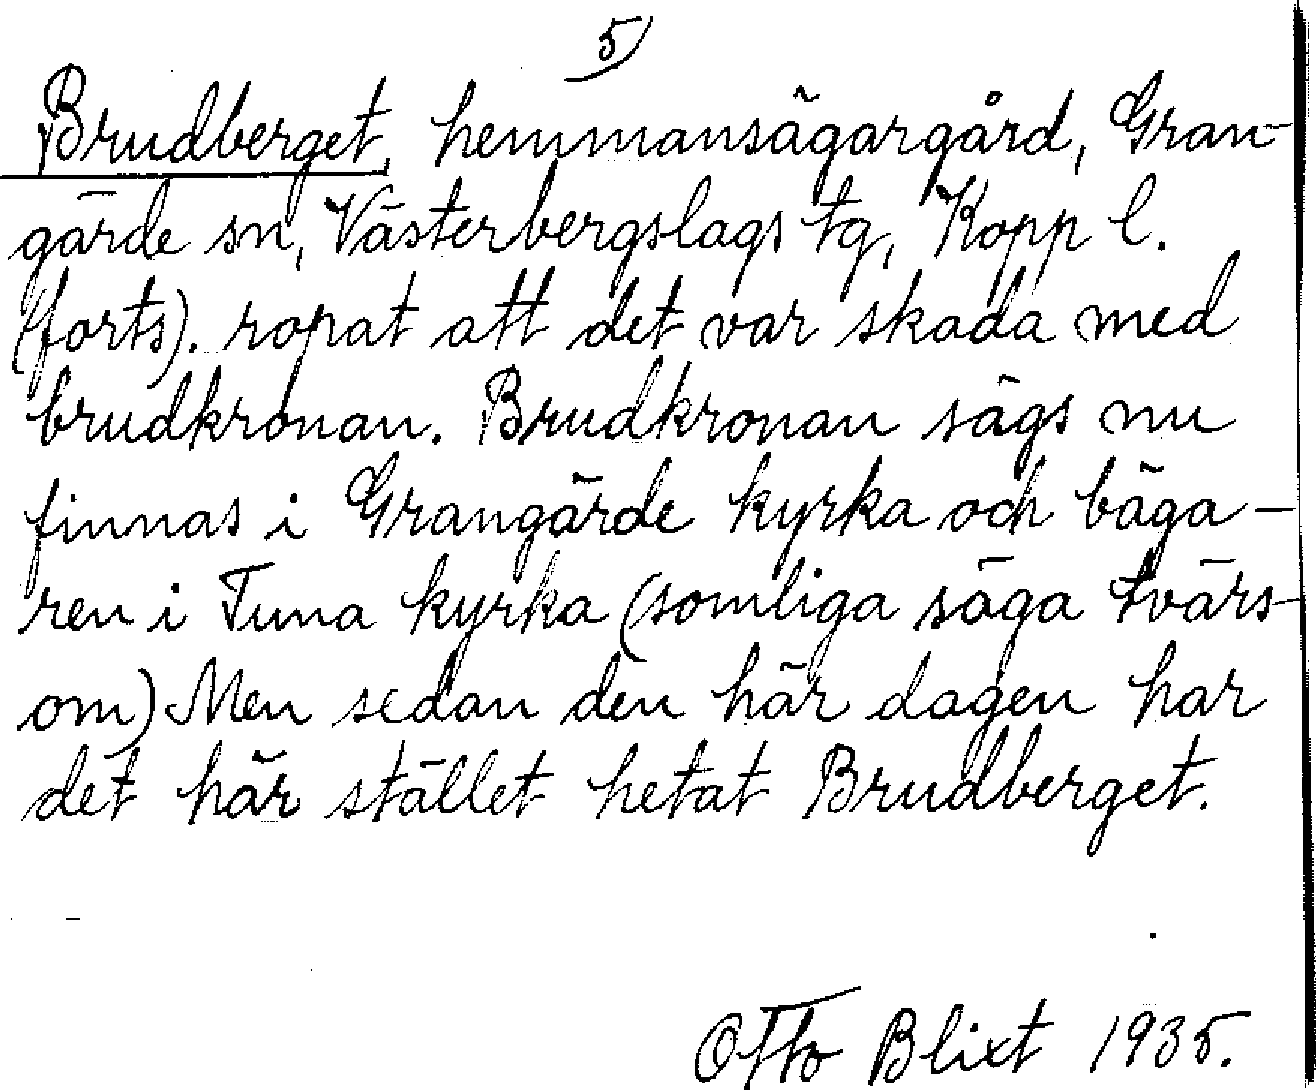 5)
Brudberget, hemmansägargård, Gran-
gärde sn, Västerbergslags tg, Kopp l.
(forts). ropat att det var skada med
brudkronan. Brudkronan sägs nu
finnas i Grangärde kyrka och bäga-
ren i Tuna kyrka (somliga säga tvärs-
om) Men sedan den här dagen har
det här stället hetat Brudberget.
Otto Blixt 1935.